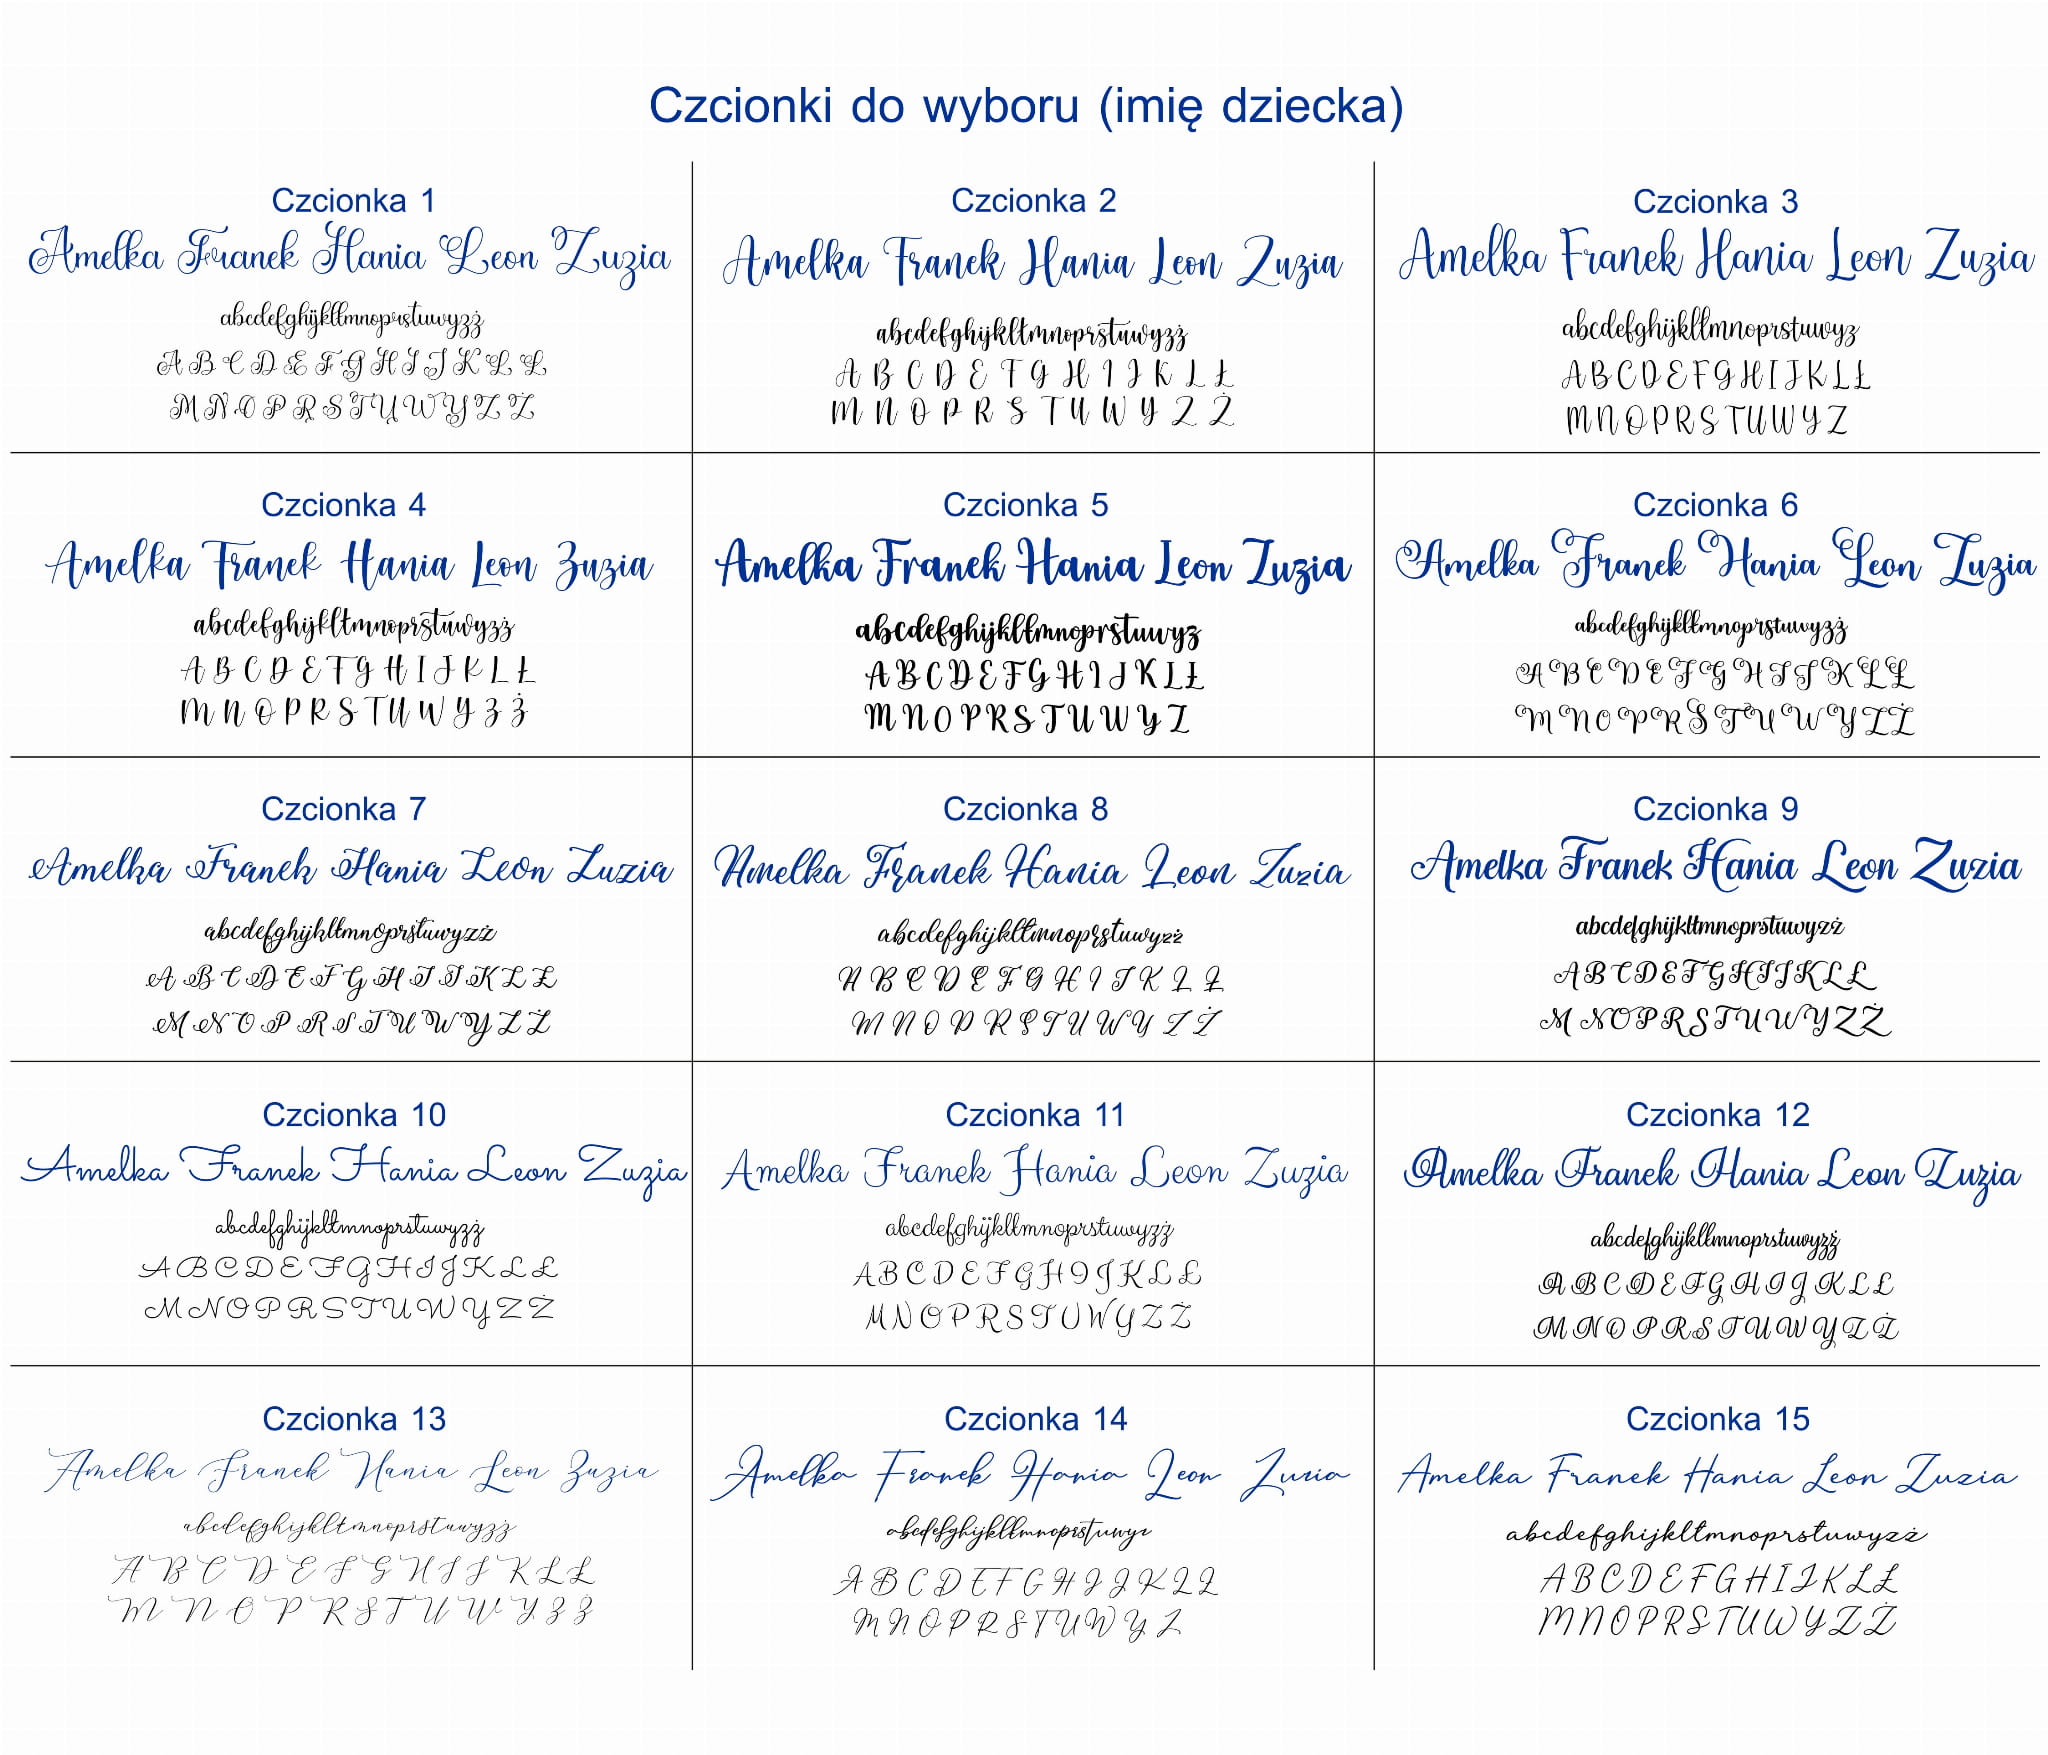 Czcionki do wyboru (imię dziecka)
Czcionka 1
Amelka Franek Hania Leon Zuzia
abcdefghijklłmnoprstuwyzż
A B C D E F G H I J K L Ł
M N O P R S T U W Y Z Ż
Czcionka 2
Amelka Franek Hania Leon Zuzia
abcdefghijklłmnoprstuwyzż
A B C D E F G H I J K L Ł
M N O P R S T U W Y Z Ż
Czcionka 3
Amelka Franek Hania Leon Zuzia
abcdefghijklłmnoprstuwyz
A B C D E F G H I J K L Ł
M N O P R S T U W Y Z
Czcionka 4
Amelka Franek Hania Leon Zuzia
abcdefghijklłmnoprstuwyzż
A B C D E F G H I J K L Ł
M N O P R S T U W Y Z Ż
Czcionka 5
Amelka Franek Hania Leon Zuzia
abcdefghijklłmnoprstuwyz
A B C D E F G H I J K L Ł
M N O P R S T U W Y Z
Czcionka 6
Amelka Franek Hania Leon Zuzia
abcdefghijklłmnoprstuwyzż
A B C D E F G H I J K L Ł
M N O P R S T U W Y Z Ż
Czcionka 7
Amelka Franek Hania Leon Zuzia
abcdefghijklłmnoprstuwyzż
A B C D E F G H I J K L Ł
M N O P R S T U W Y Z Ż
Czcionka 8
Amelka Franek Hania Leon Zuzia
abcdefghijklłmnoprstuwyzż
A B C D E F G H I J K L Ł
M N O P R S T U W Y Z Ż
Czcionka 9
Amelka Franek Hania Leon Zuzia
abcdefghijklłmnoprstuwyzż
A B C D E F G H I J K L Ł
M N O P R S T U W Y Z Ż
Czcionka 10
Amelka Franek Hania Leon Zuzia
abcdefghijklłmnoprstuwyzż
A B C D E F G H I J K L Ł
M N O P R S T U W Y Z Ż
Czcionka 11
Amelka Franek Hania Leon Zuzia
abcdefghijklłmnoprstuwyzż
A B C D E F G H I J K L Ł
M N O P R S T U W Y Z Ż
Czcionka 12
Amelka Franek Hania Leon Zuzia
abcdefghijklłmnoprstuwyzż
A B C D E F G H I J K L Ł
M N O P R S T U W Y Z Ż
Czcionka 13
Amelka Franek Hania Leon Zuzia
abcdefghijklłmnoprstuwyzż
A B C D E F G H I J K L Ł
M N O P R S T U W Y Z Ż
Czcionka 14
Amelka Franek Hania Leon Zuzia
abcdefghijklłmnoprstuwyz
A B C D E F G H I J K L Ł
M N O P R S T U W Y Z
Czcionka 15
Amelka Franek Hania Leon Zuzia
abcdefghijklłmnoprstuwyzż
A B C D E F G H I J K L Ł
M N O P R S T U W Y Z Ż